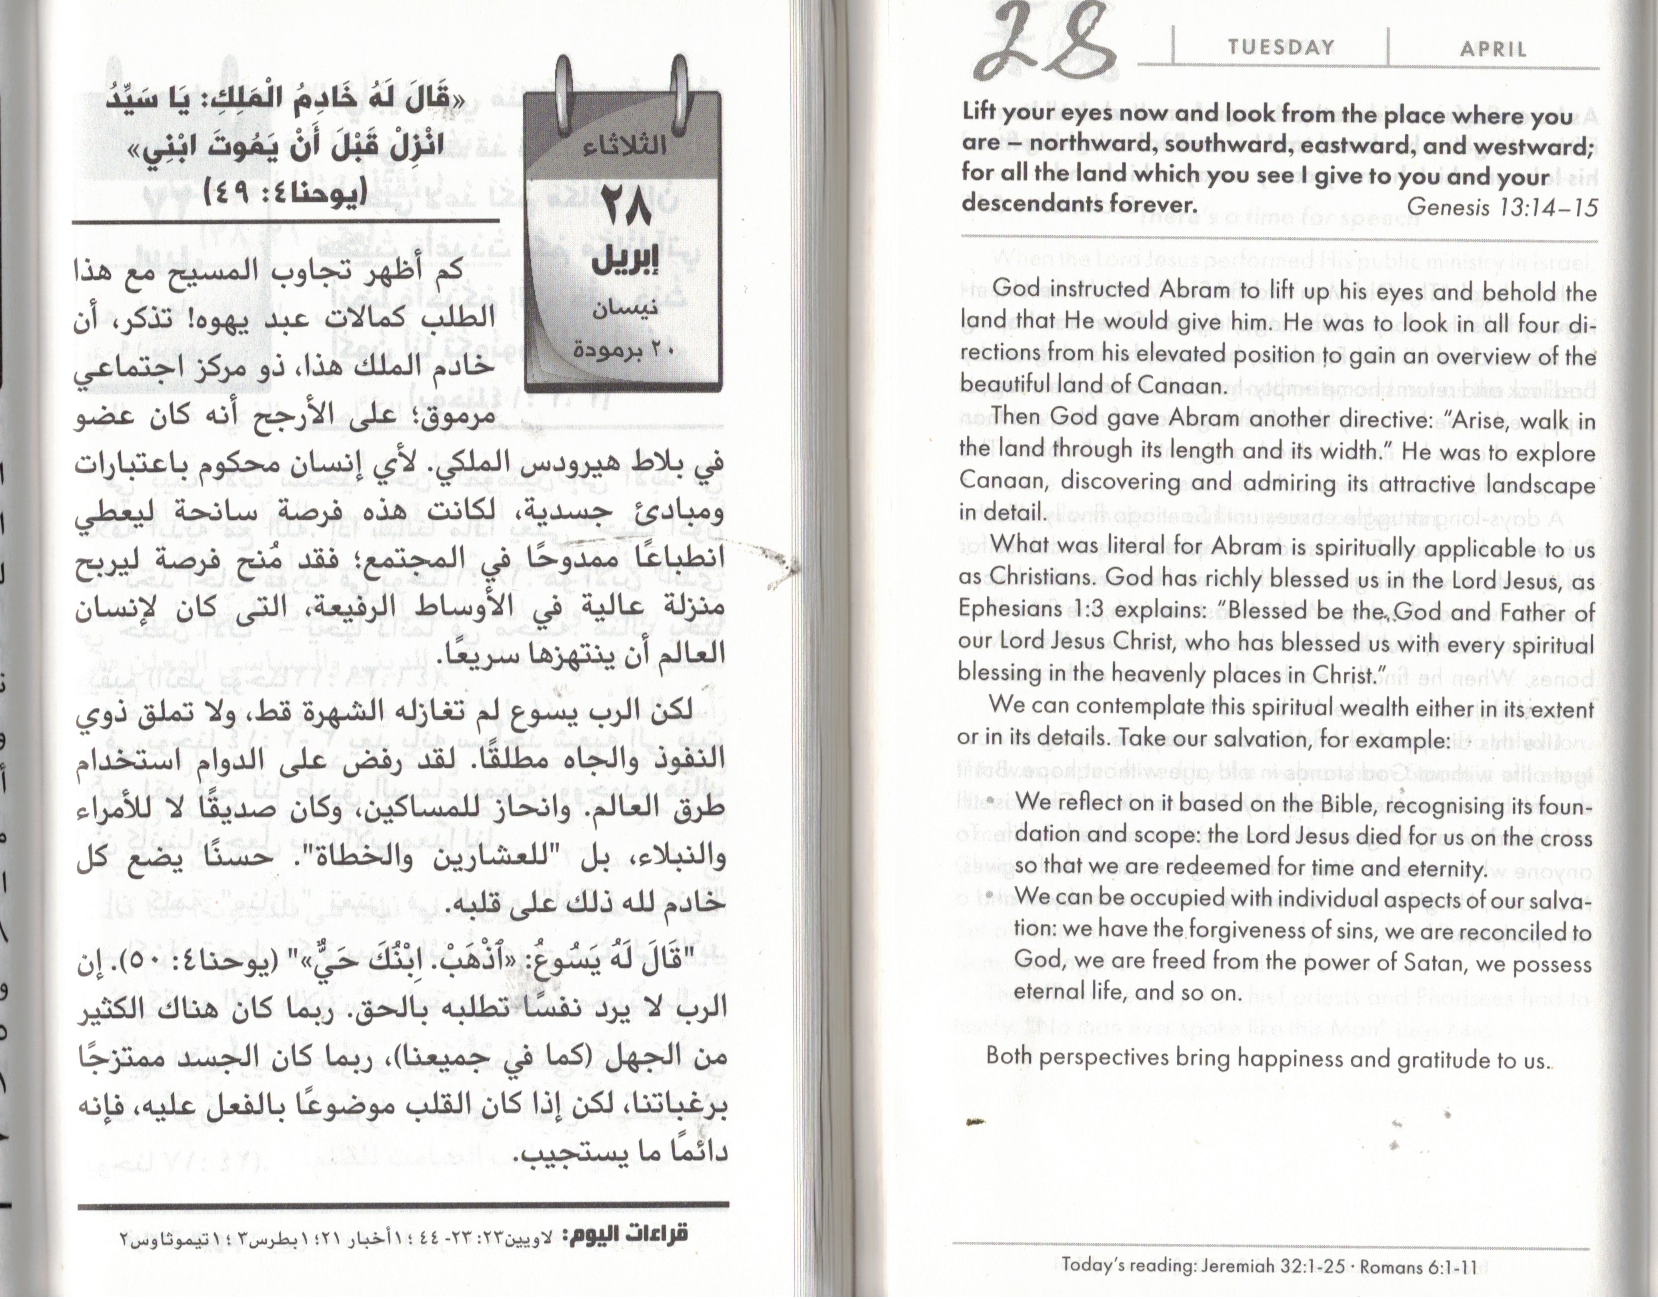 «قَالَ لَهُ خَادِمُ الْمَلِكِ: يَا سَيِّدُ
انْزِلْ قَبْلَ أَنْ يَمُوتَ ابْنِي»
(يوحنا٤: ٤٩)
الثلاثاء
٢٨
إبريل
نيسان
٢٠ برمودة
كم أظهر تجاوب المسيح مع هذا
الطلب كمالات عبد يهوه! تذكر، أن
خادم الملك هذا، ذو مركز اجتماعي
مرموق؛ على الأرجح أنه كان عضو
في بلاط هيرودس الملكي. لأي إنسان محكوم باعتبارات
ومبادئ جسدية، لكانت هذه فرصة سانحة ليعطي
انطباعًا ممدوحًا في المجتمع؛ فقد مُنح فرصة ليربح
منزلة عالية في الأوساط الرفيعة، التى كان لإنسان
العالم أن ينتهزها سريعًا.
لكن الرب يسوع لم تغازله الشهرة قط، ولا تملق ذوي
النفوذ والجاه مطلقًا. لقد رفض على الدوام استخدام
طرق العالم. وانحاز للمساكين، وكان صديقًا لا للأمراء
والنبلاء، بل "للعشارين والخطاة". حسنًا يضع كل
خادم لله ذلك على قلبه.
"قَالَ لَهُ يَسُوعُ: «ٱذْهَبْ. اِبْنُكَ حَيٌّ»" (يوحنا٤: ٥٠). إن
الرب لا يرد نفسًا تطلبه بالحق. ربما كان هناك الكثير
من الجهل (كما في جميعنا)، ربما كان الجسد ممتزجًا
برغباتنا، لكن إذا كان القلب موضوعًا بالفعل عليه، فإنه
دائمًا ما يستجيب.
قراءات اليوم: لاويين٢٣: ٢٣- ٤٤ ؛ ١أخبار ٢١؛ ١بطرس٣ ؛ ١تيموثاوس٢
28
TUESDAY
APRIL
Lift your eyes now and look from the place where you
are – northward, southward, eastward, and westward;
for all the land which you see I give to you and your
descendants forever. Genesis 13:14–15
God instructed Abram to lift up his eyes and behold the
land that He would give him. He was to look in all four di-
rections from his elevated position to gain an overview of the
beautiful land of Canaan.
Then God gave Abram another directive: “Arise, walk in
the land through its length and its width.” He was to explore
Canaan, discovering and admiring its attractive landscape
in detail.
What was literal for Abram is spiritually applicable to us
as Christians. God has richly blessed us in the Lord Jesus, as
Ephesians 1:3 explains: “Blessed be the God and Father of
our Lord Jesus Christ, who has blessed us with every spiritual
blessing in the heavenly places in Christ.”
We can contemplate this spiritual wealth either in its extent
or in its details. Take our salvation, for example:
• We reflect on it based on the Bible, recognising its foun-
dation and scope: the Lord Jesus died for us on the cross
so that we are redeemed for time and eternity.
• We can be occupied with individual aspects of our salva-
tion: we have the forgiveness of sins, we are reconciled to
God, we are freed from the power of Satan, we possess
eternal life, and so on.
Both perspectives bring happiness and gratitude to us.
Today's reading: Jeremiah 32:1-25 · Romans 6:1-11